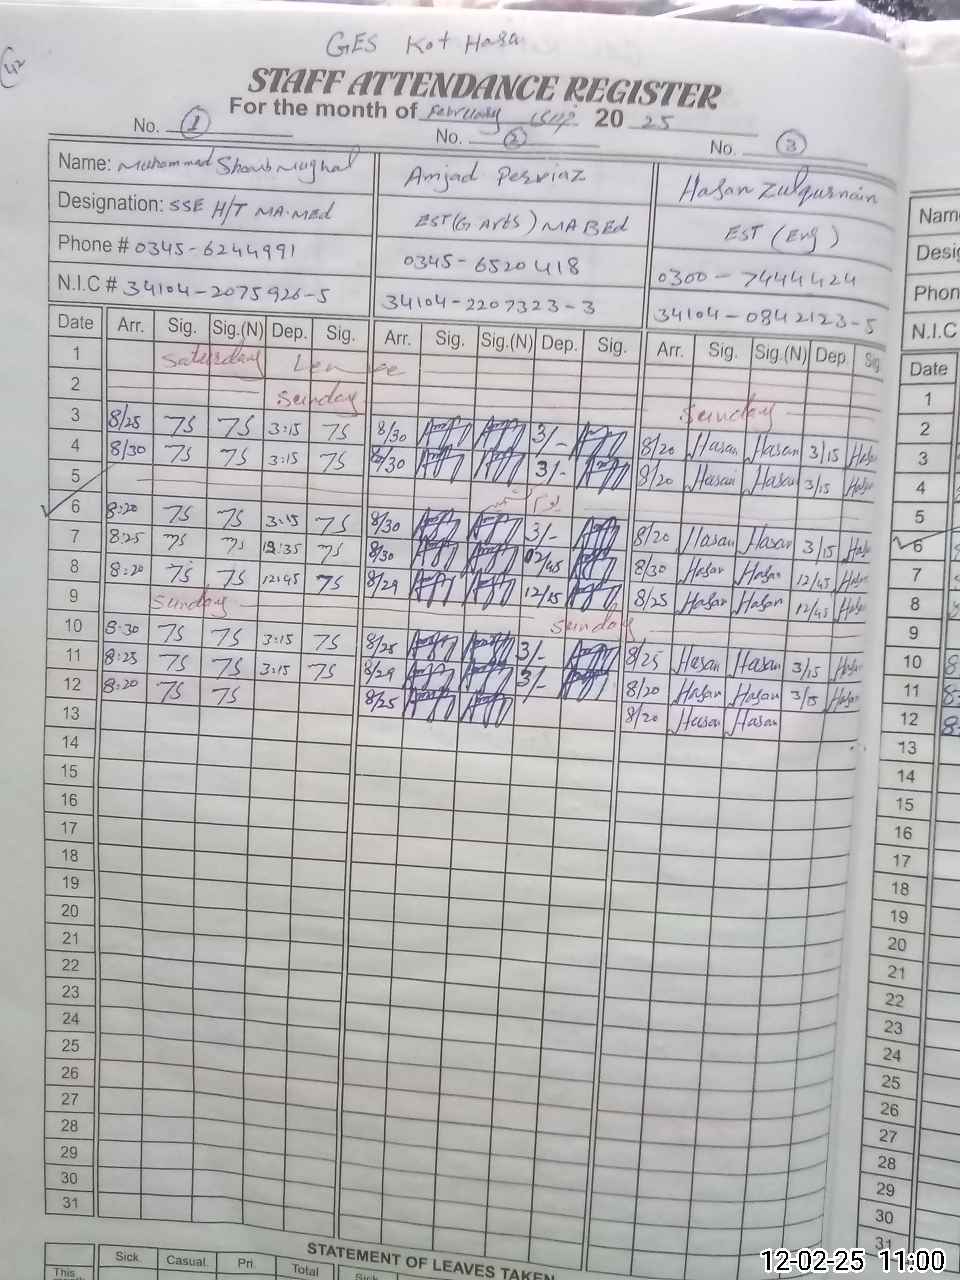 42
GES Kot Hasan
STAFF ATTENDANCE REGISTER
For the month of February 2025
No. 1 No. 2 No. 3
Name: Muhammad Shoaib Mughal Amjad Perviaz Hasan Zulqurnain
Designation: SSE H/T MA.MEd EST (G Arts) MA BEd EST (Eng)
Phone # 0345-6244991 0345-6520418 0300-7444424
N.I.C # 34104-2075926-5 34104-2207323-3 34104-0842123-5
Date Arr. Sig. Sig.(N) Dep. Sig. Arr. Sig. Sig.(N) Dep. Sig. Arr. Sig. Sig.(N) Dep. Sig
1 Saturday
2 Sunday Sunday
3 8/25 7S 7S 3:15 7S 8/30 3/- 8/20 Hasan Hasan 3/15 Hasa
4 8/30 7S 7S 3:15 7S 8/30 3/- 8/20 Hasan Hasan 3/15 Hasa
5
6 8:20 7S 7S 3:15 7S 8/30 3/- 8/20 Hasan Hasan 3/15 Hasa
7 8:25 7S 7S 12:35 7S 8/30 12/45 8/30 Hasan Hasan 12/45 Hasa
8 8:20 7S 7S 12:45 7S 8/29 12/15 8/25 Hasan Hasan 12/45 Hasa
9 Sunday Sunday
10 8:30 7S 7S 3:15 7S 8/25 3/- 8/25 Hasan Hasan 3/15 Hasa
11 8:25 7S 7S 3:15 7S 8/29 3/- 8/20 Hasan Hasan 3/15 Hasan
12 8:20 7S 7S 8/25 8/20 Hasan Hasan
13
14
15
16
17
18
19
20
21
22
23
24
25
26
27
28
29
30
31
STATEMENT OF LEAVES TAKEN
Sick. Casual. Pri. Total Sick
This
Nam
Desig
Phon
N.I.C
Date
1
2
3
4
5
6
7
8
9
10
11
12
13
14
15
16
17
18
19
20
21
22
23
24
25
26
27
28
29
30
31
12-02-25 11:00